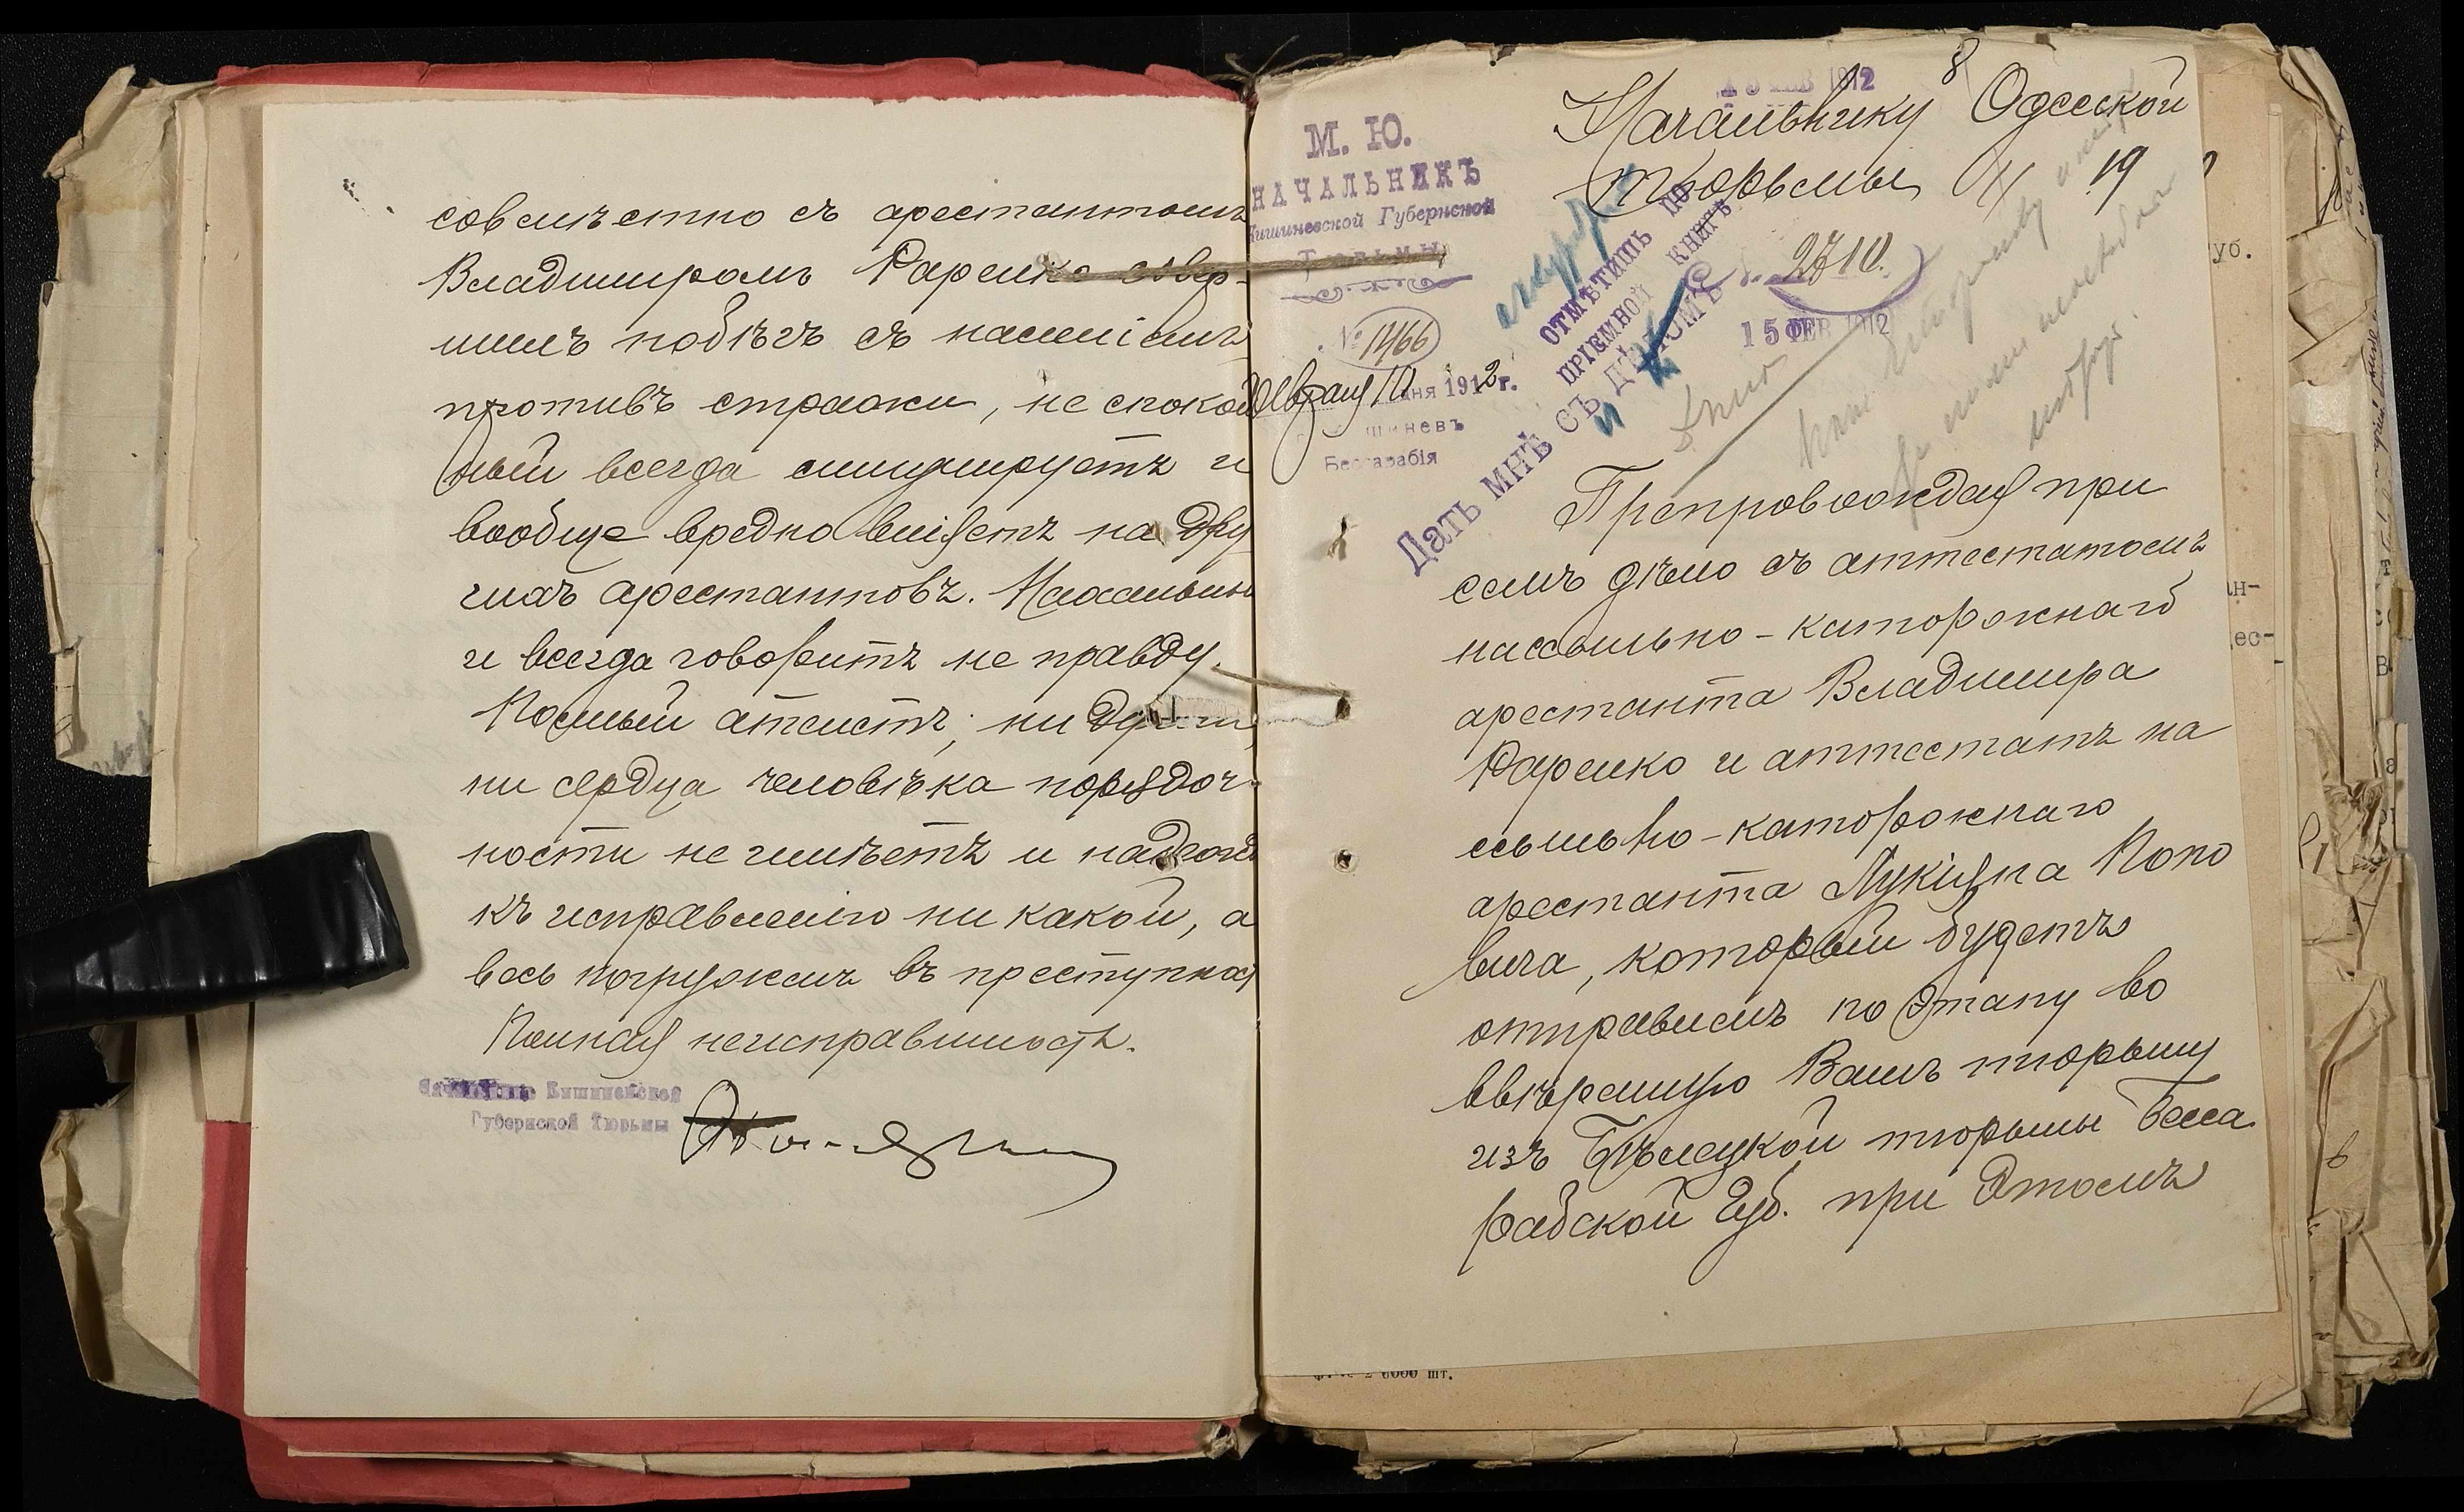 совмѣстно съ арестантомъ
Владимиромъ Раренко совер-
шилъ побѣгъ съ насиліемъ
противъ стражи, не спокой
ный всегда симулируетъ и
вообще вредно вліяетъ на дру
гихъ арестантовъ. Нахальный
и всегда говоритъ не правду.
Полный атеистъ, ни души,
ни сердца человѣка порядоч-
ности не имѣетъ и надежды
къ исправленію ни какой, а
весь погруженъ въ преступность
Полная неисправимость.
Начальникъ Кишиневской
Губернской Тюрьмы
8
15 ФЕВ 1912
Начальнику Одесской
тюрьмы
19
М. Ю.
НАЧАЛЬНИКЪ
Кишиневской Губернской
Тюрьмы
№ 1466
Февраля 10 дня 1912 г.
Кишиневъ
Бессарабія
ОТМѢТИТЬ ПО
ПРІЕМНОЙ КНИГѢ
И
Дать мнѣ съ дѣломъ
2710.
15 ФЕВ 1912
Препровождая при
семъ дѣло съ аттестатомъ
на ссыльно-каторжнаго
арестанта Владимира
Раренко и аттестатъ на
ссыльно-каторжнаго
арестанта Лукіяна Попо
вича, который будетъ
отправленъ по этапу во
ввѣренную Вамъ тюрьму
изъ Бѣлецкой тюрьмы Бесса
рабской Губ. при этомъ
6000 шт.
уб.